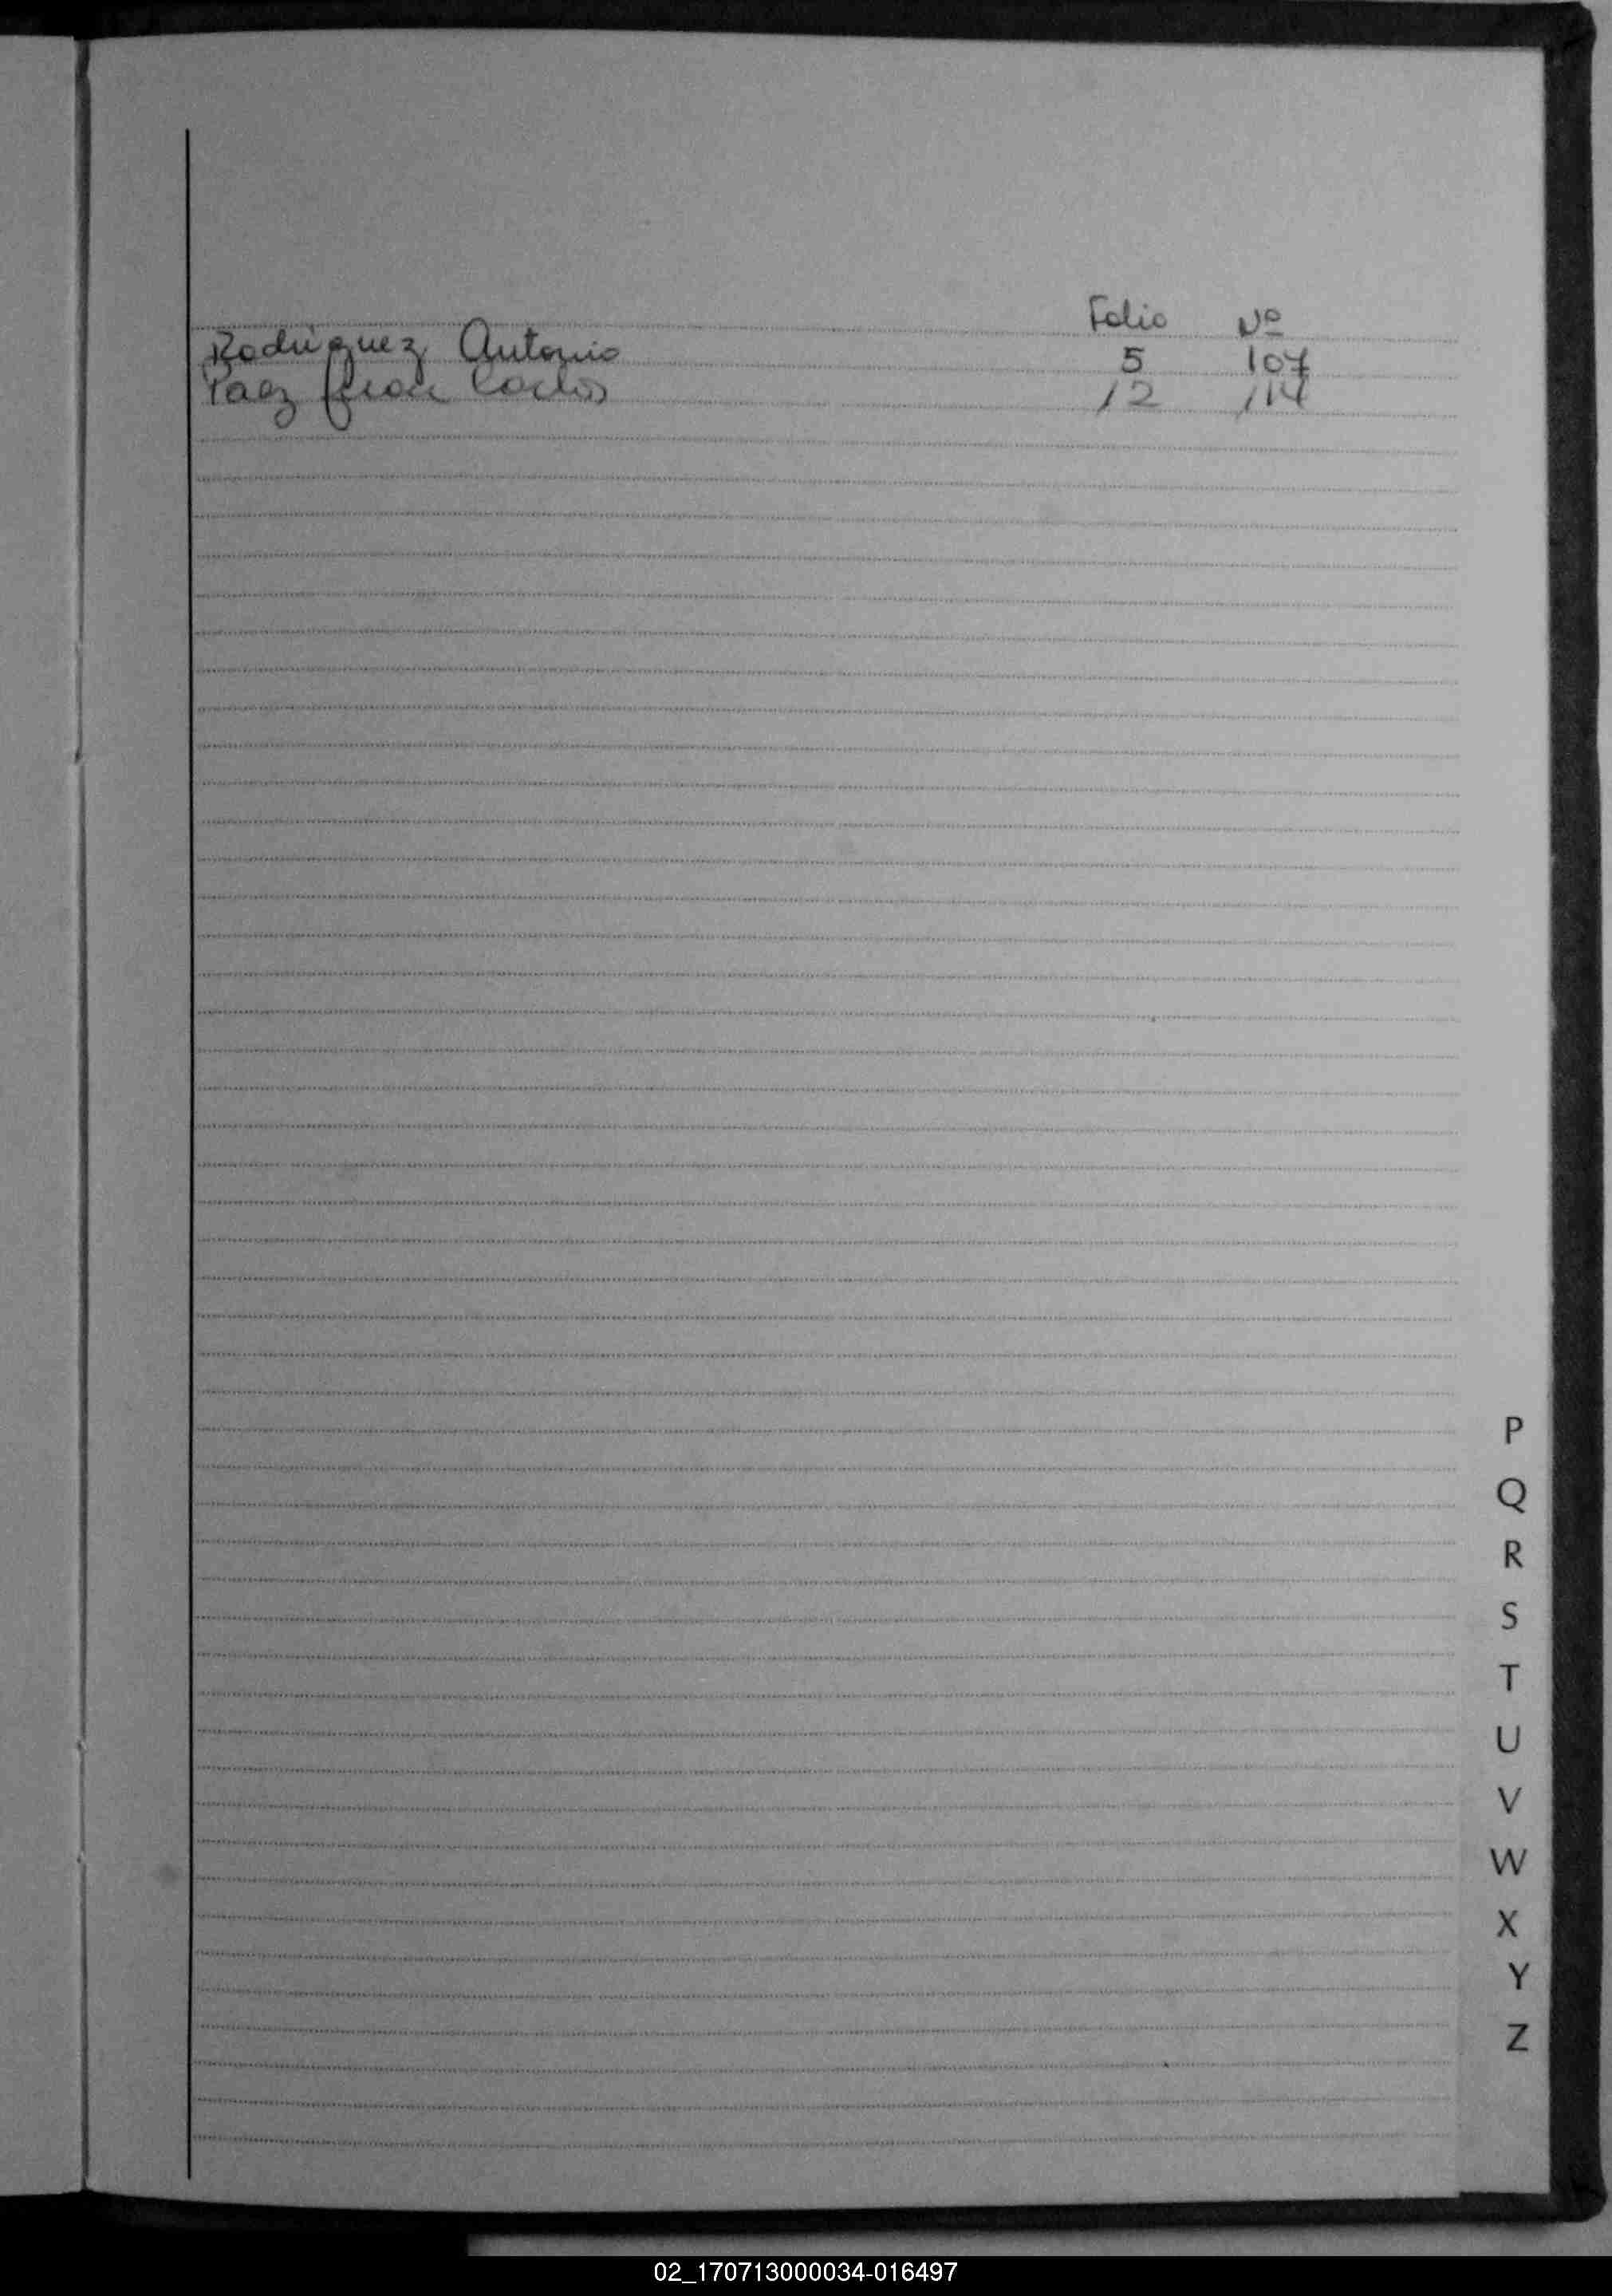 Folio Nº
Rodriguez Antonio 5 107
Paez Juan Carlos 12 114
P
Q
R
S
T
U
V
W
X
Y
Z
02_170713000034-016497